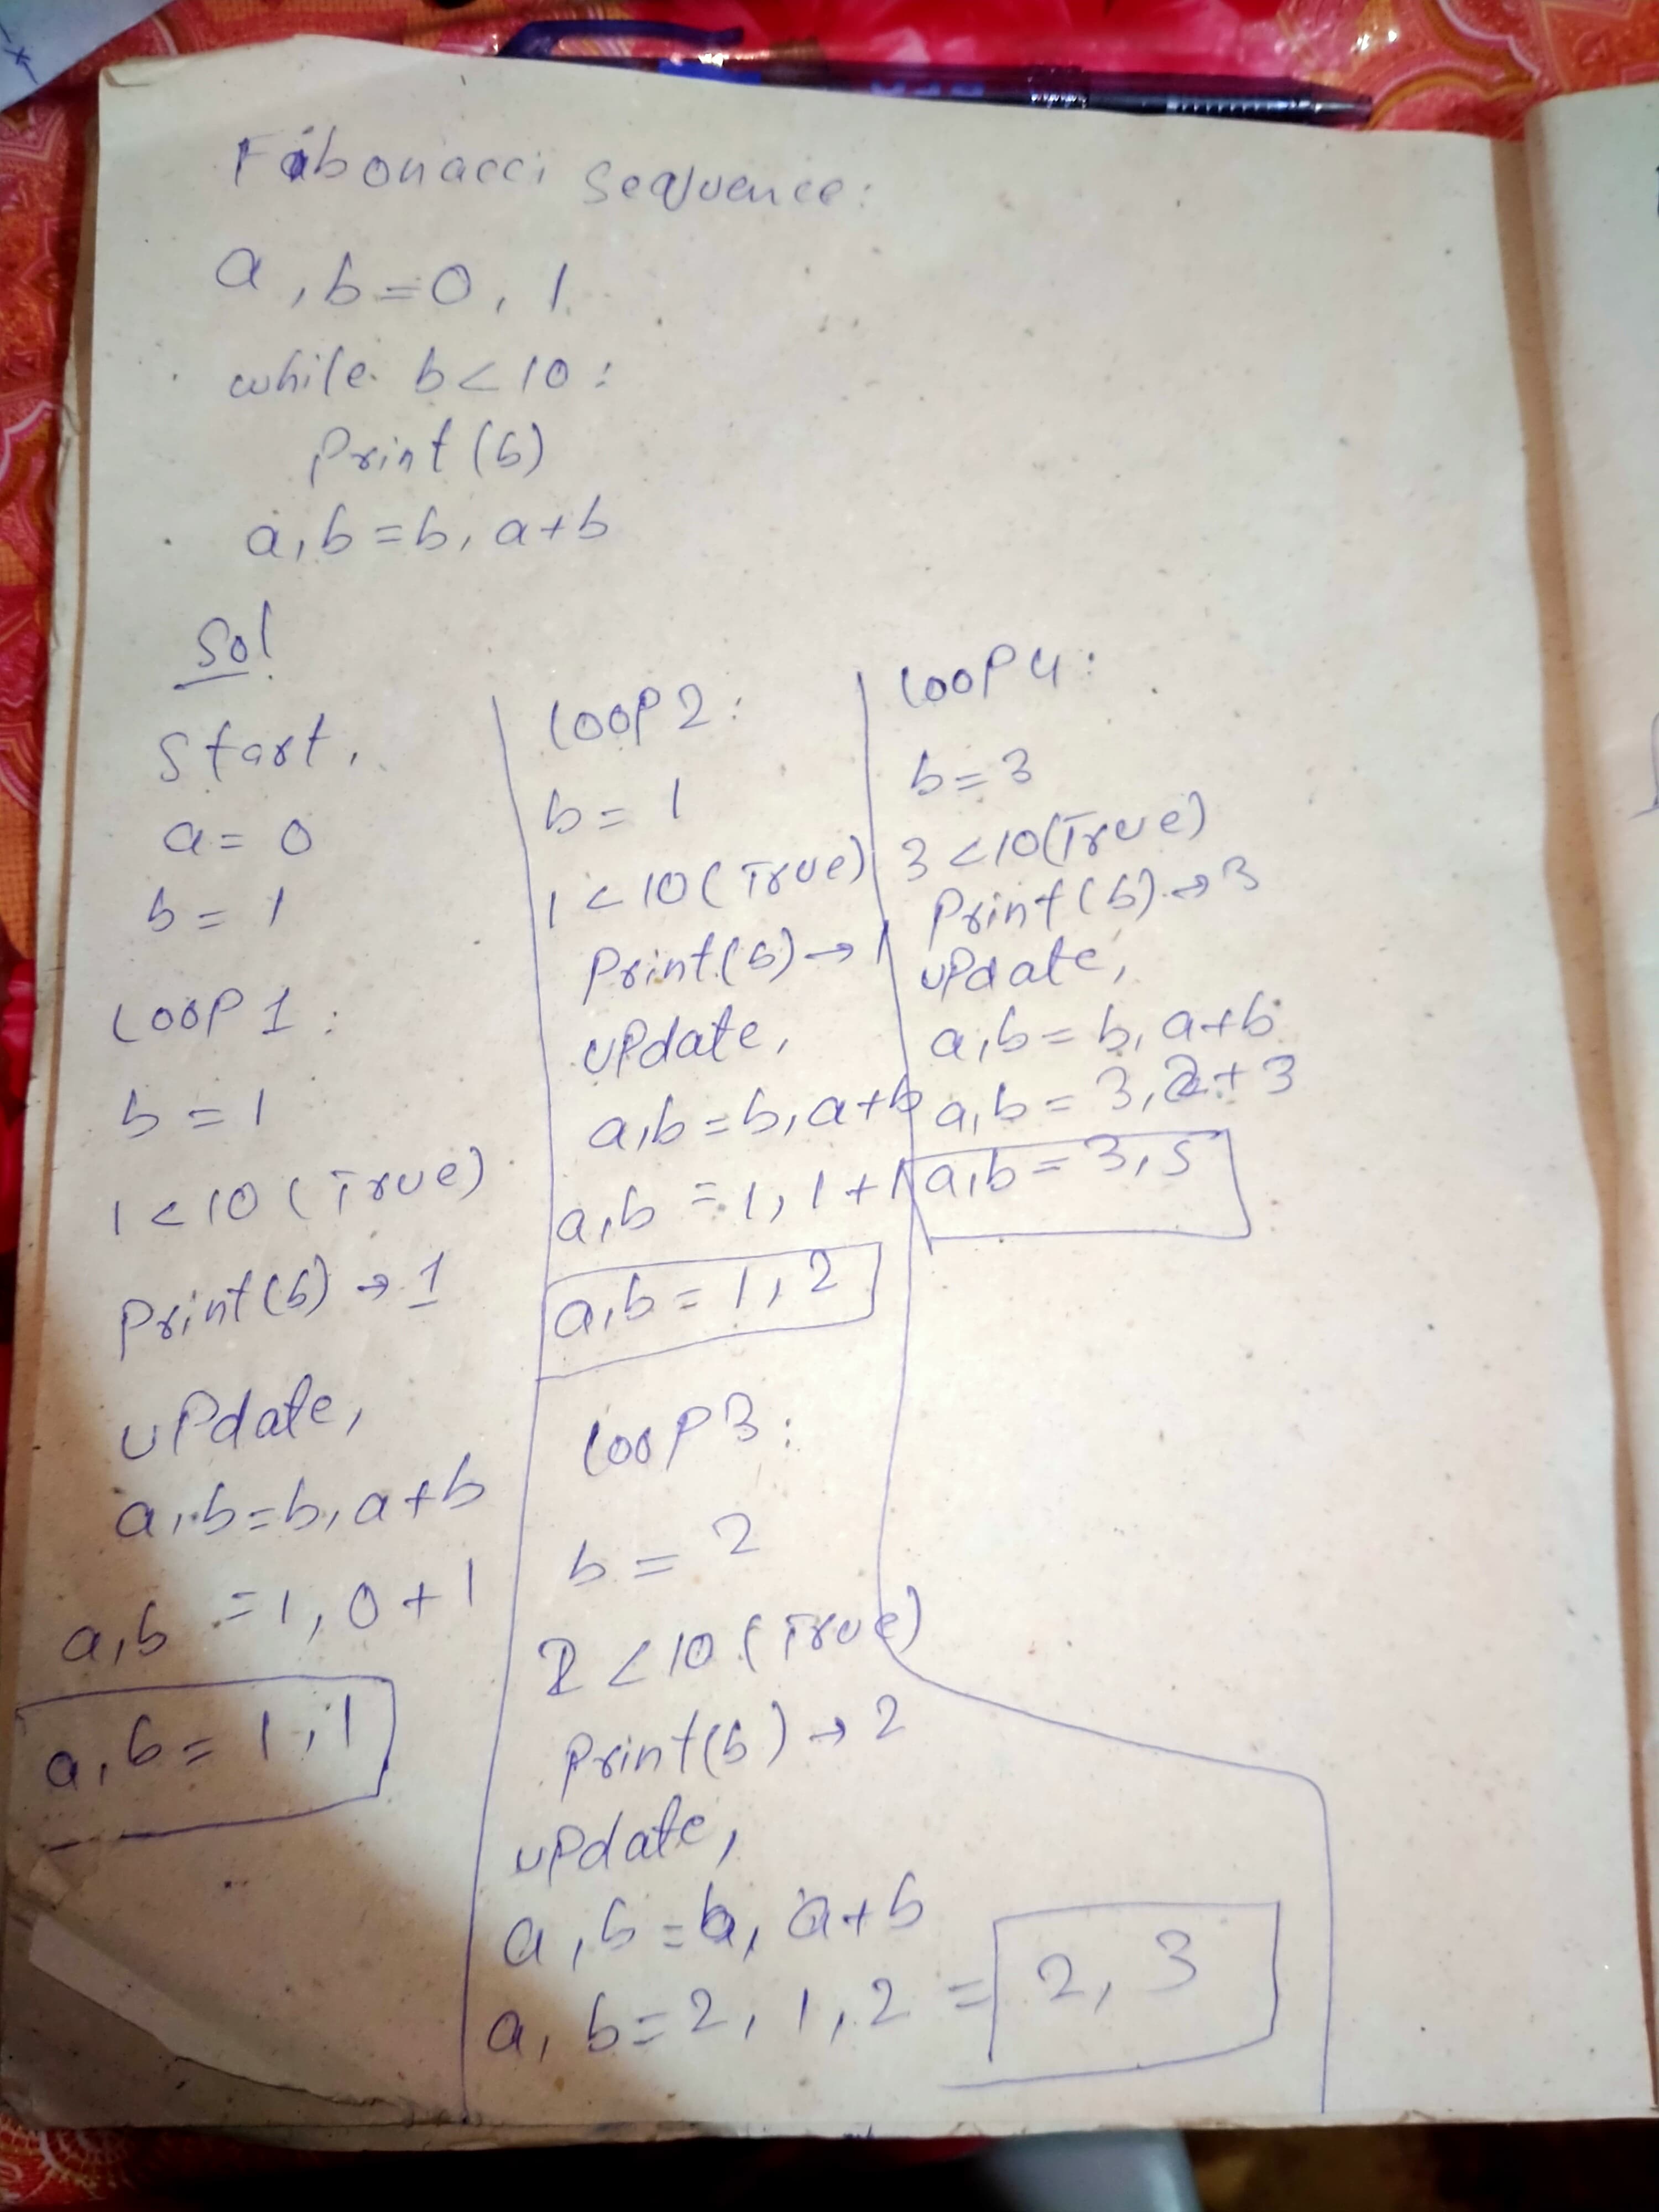 Fibonacci Sequence:
a, b=0, 1
while b<10:
Print(b)
a,b=b, a+b
Sol
Start,
a= 0
b= 1
LOOP 1:
b=1
1<10 (True)
Print(b)→1
uPdate,
a,b=b,a+b
a,b =1,0+1
a,b= 1,1
LOOP 2:
b= 1
1<10(True)
Print(b)→1
uPdate,
a,b=b,a+b
a,b =1,1+1
a,b= 1,2
LOOP 3:
b= 2
2<10 (True)
Print(b)→2
uPdate,
a,b=b, a+b
a, b=2, 1,2 = 2, 3
LOOP 4:
b=3
3<10(True)
Print(b)→3
uPdate,
a,b= b, a+b
a,b= 3,2+3
a,b= 3,5